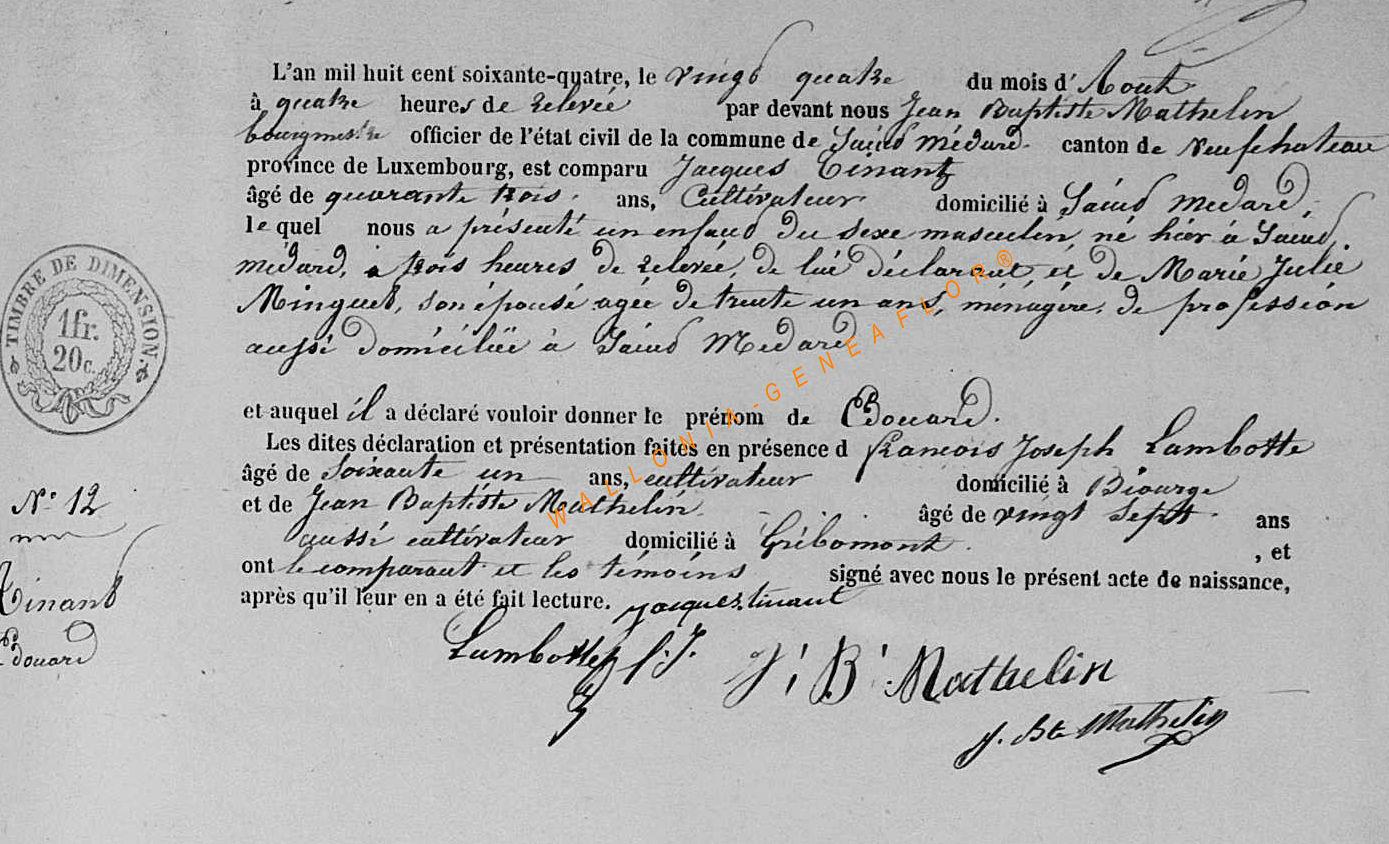 L'an mil huit cent soixante-quatre, le vingt quatre du mois d'Aout
à quatre heures de relevée par devant nous Jean Baptiste Mathelin
bourgmestre officier de l'état civil de la commune de Saint Médard canton de Neufchateau
province de Luxembourg, est comparu Jacques Tinant
âgé de quarante trois ans, Cultivateur domicilié à Saint Medard,
le quel nous a présenté un enfant du sexe masculin, né hier à Saint
médard, à trois heures de relevée, de lui déclarant et de Marie Julie
Minguet, son épouse agée de trente un ans, ménagère, de profession
aussi domiciliée à Saint Medard
et auquel il a déclaré vouloir donner le prénom de Edouard.
Les dites déclaration et présentation faites en présence d françois Joseph Lambotte
âgé de soixante un ans, cultivateur domicilié à Biourge
et de Jean Baptiste Mathelin âgé de vingt sept ans
aussi cultivateur domicilié à Gribomont , et
ont le comparant et les témoins signé avec nous le présent acte de naissance,
après qu'il leur en a été fait lecture. Jacques tinant
Lambotte f. J. J. B. Mathelin
J. Bte Mathelin
TIMBRE DE DIMENSION
1fr.
20c.
N° 12
Tinant
Edouard
WALLONIA-GENEAFLOR®